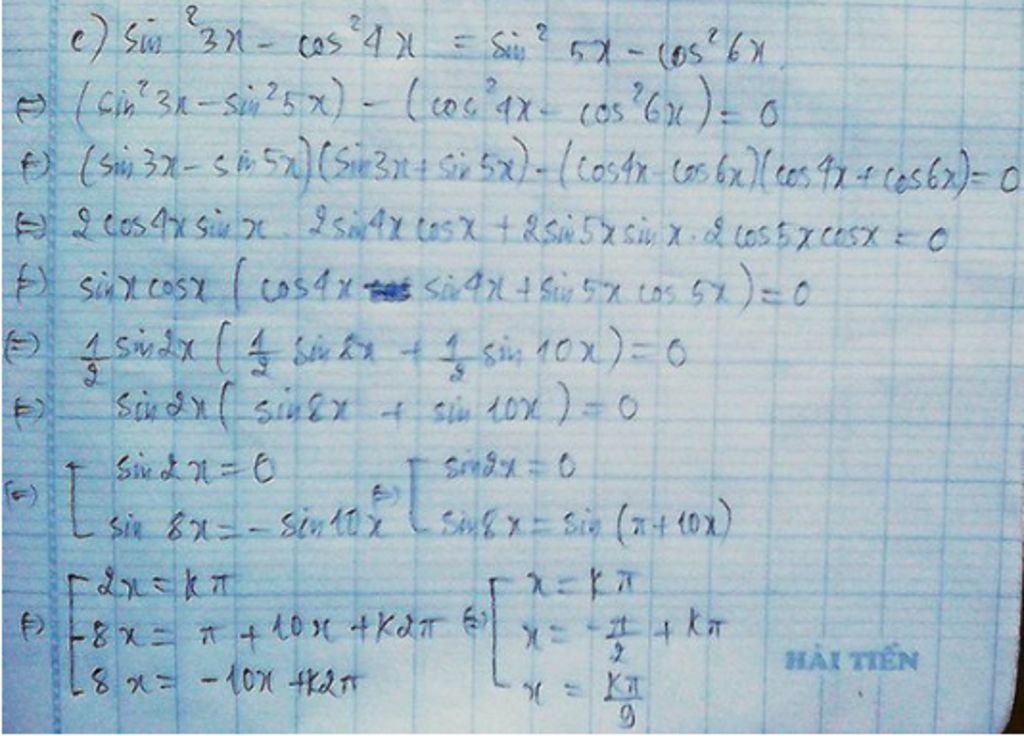 c) sin²3x - cos²4x = sin²5x - cos²6x
⇔ (sin²3x - sin²5x) - (cos²4x - cos²6x) = 0
⇔ (sin3x - sin5x)(sin3x + sin5x) - (cos4x - cos6x)(cos4x + cos6x) = 0
⇔ 2cos4x sinx . 2sin4x cosx + 2sin5x sinx . 2cos5x cosx = 0
⇔ sinx cosx (cos4x sin4x + sin5x cos5x) = 0
⇔ 1/2 sin2x (1/2 sin8x + 1/2 sin10x) = 0
⇔ sin2x (sin8x + sin10x) = 0
⇔ [ sin2x = 0 ⇔ [ sin2x = 0
sin8x = -sin10x sin8x = sin(π + 10x)
⇔ [ 2x = kπ ⇔ [ x = kπ
8x = π + 10x + k2π x = -π/2 + kπ
8x = -10x + k2π x = kπ/9
HẢI TIẾN